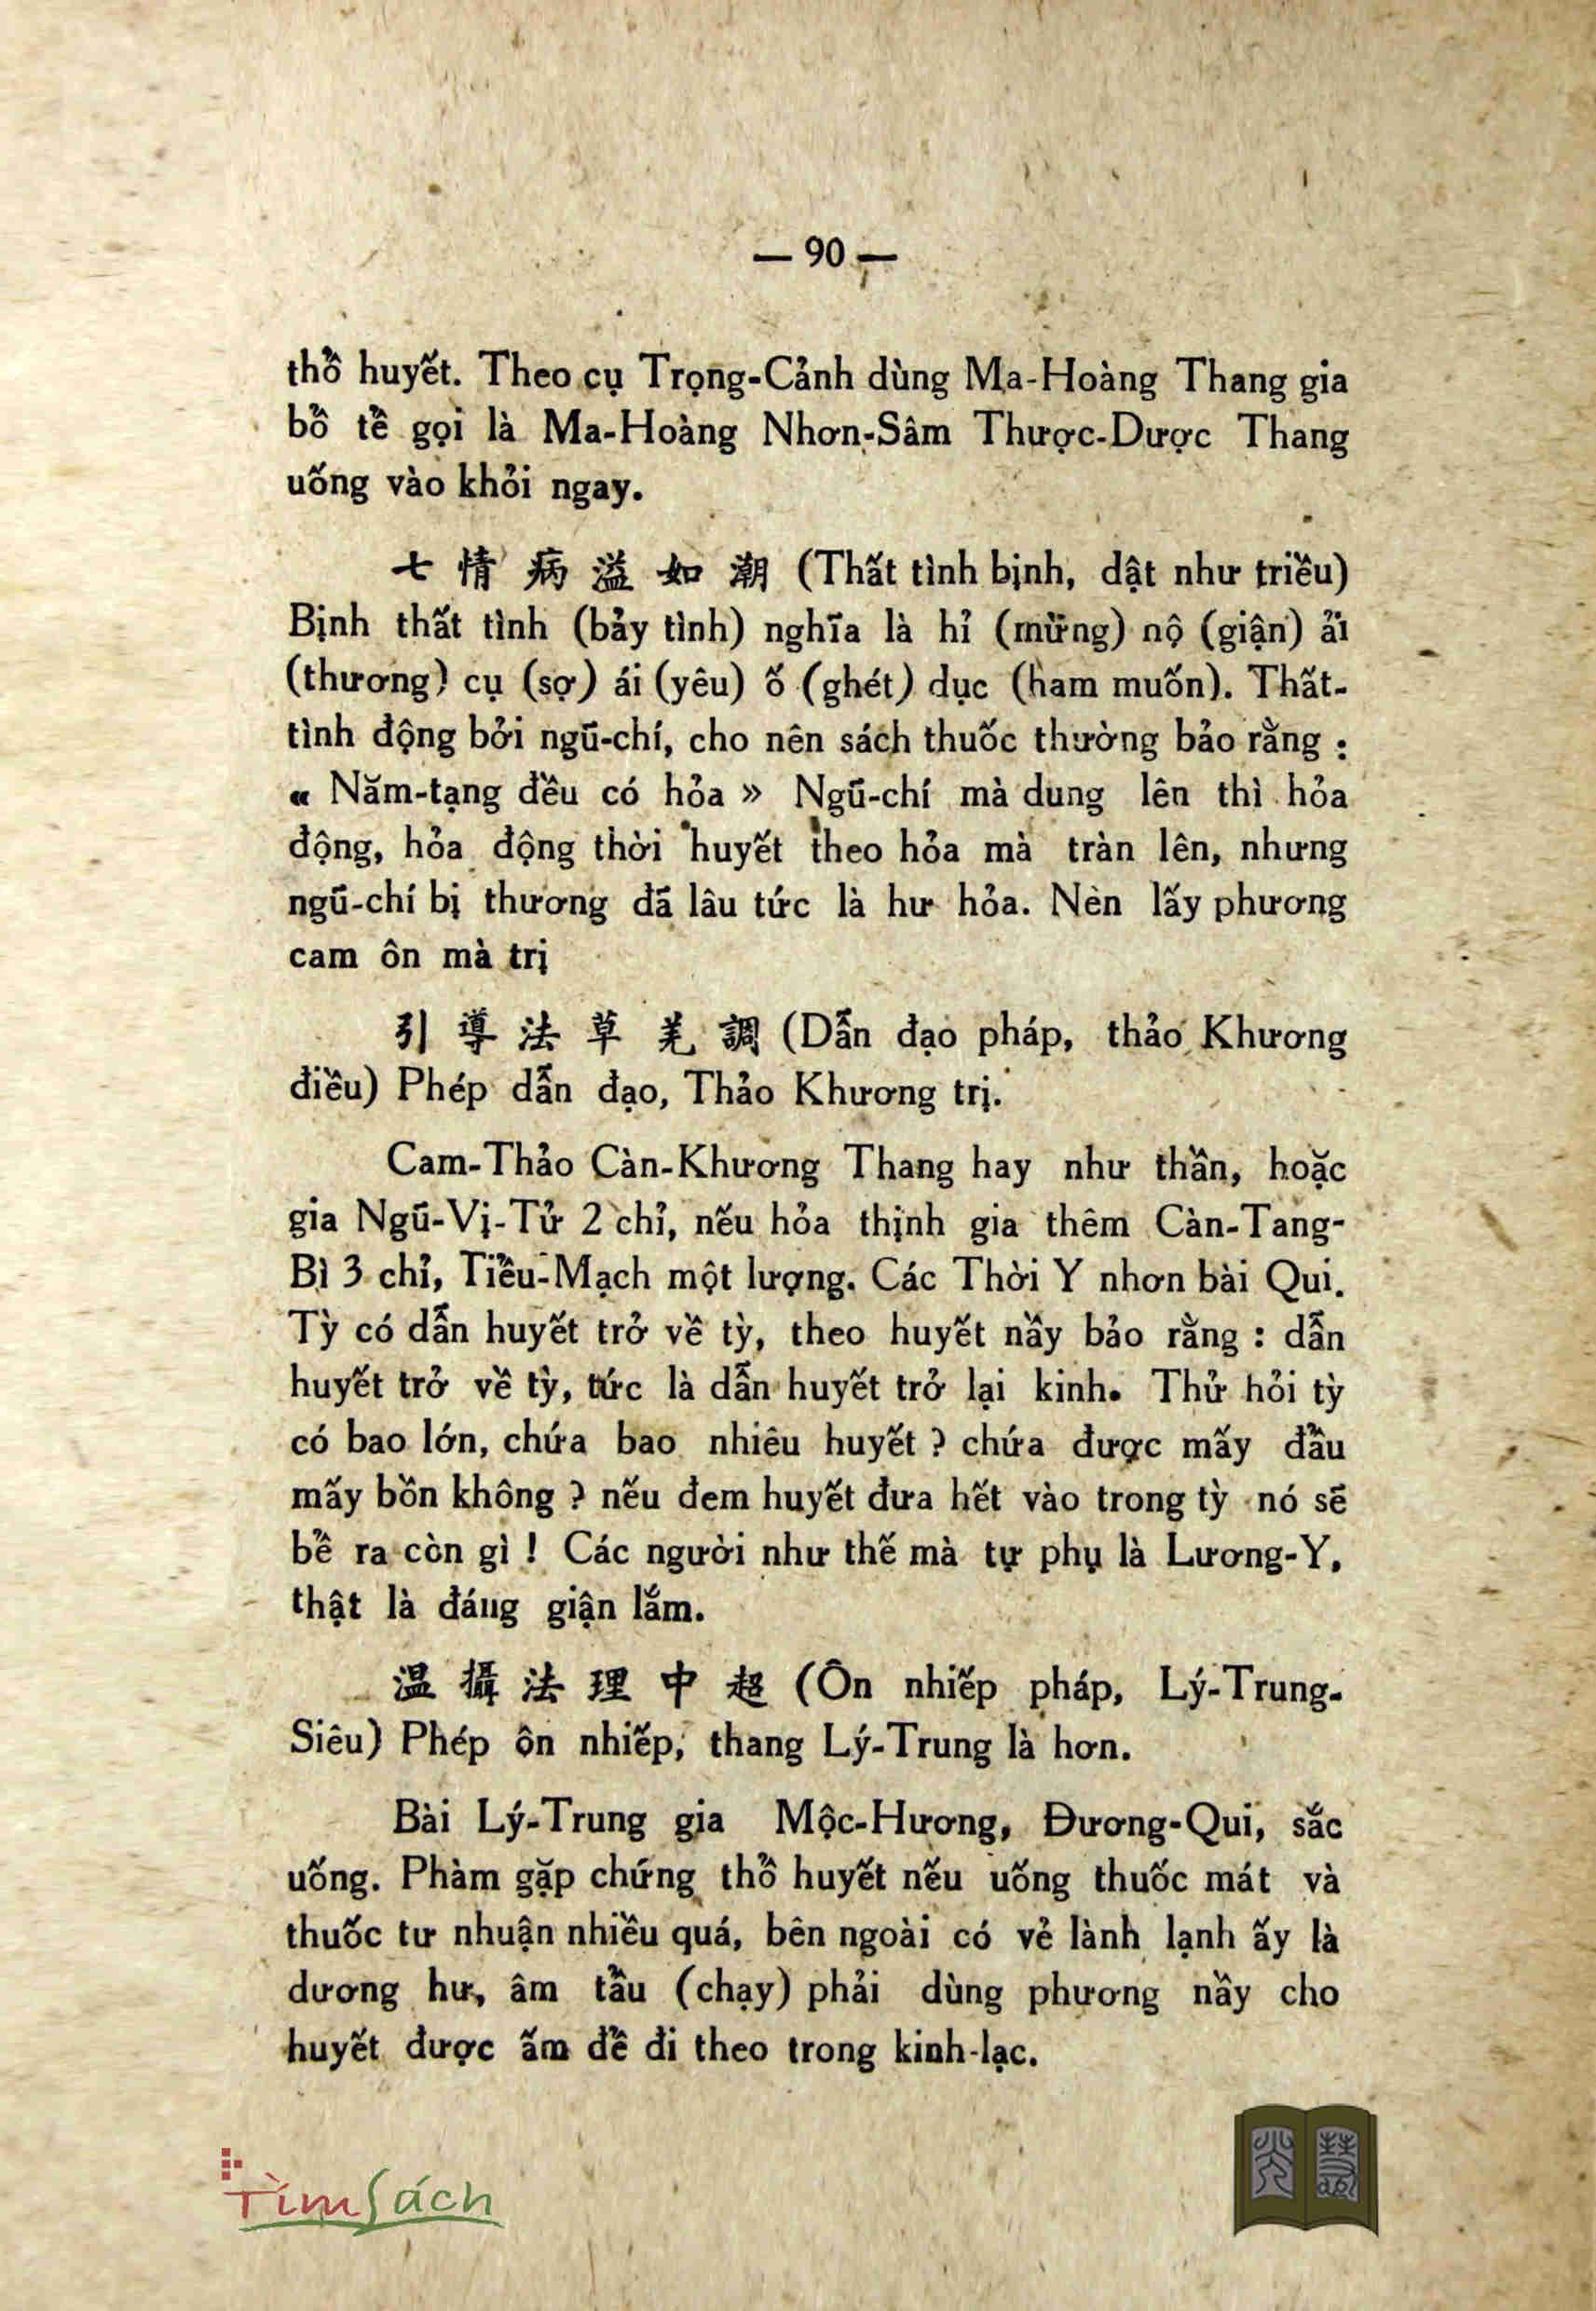 — 90 —
thổ huyết. Theo cụ Trọng-Cảnh dùng Ma-Hoàng Thang gia
bổ tề gọi là Ma-Hoàng Nhơn-Sâm Thược-Dược Thang
uống vào khỏi ngay.
七 情 病 溢 如 潮 (Thất tình bịnh, dật như triều)
Bịnh thất tình (bảy tình) nghĩa là hỉ (mừng) nộ (giận) ải
(thương) cụ (sợ) ái (yêu) ố (ghét) dục (ham muốn). Thất-
tình động bởi ngũ-chí, cho nên sách thuốc thường bảo rằng :
« Năm-tạng đều có hỏa » Ngũ-chí mà dung lên thì hỏa
động, hỏa động thời huyết theo hỏa mà tràn lên, nhưng
ngũ-chí bị thương đã lâu tức là hư hỏa. Nèn lấy phương
cam ôn mà trị
引 導 法 草 羌 調 (Dẫn đạo pháp, thảo Khương
điều) Phép dẫn đạo, Thảo Khương trị.
Cam-Thảo Càn-Khương Thang hay như thần, hoặc
gia Ngũ-Vị-Tử 2 chỉ, nếu hỏa thịnh gia thêm Càn-Tang-
Bì 3 chỉ, Tiều-Mạch một lượng. Các Thời Y nhơn bài Qui.
Tỳ có dẫn huyết trở về tỳ, theo huyết nầy bảo rằng : dẫn
huyết trở về tỳ, tức là dẫn huyết trở lại kinh. Thử hỏi tỳ
có bao lớn, chứa bao nhiêu huyết ? chứa được mấy đầu
mấy bồn không ? nếu đem huyết đưa hết vào trong tỳ nó sẽ
bể ra còn gì ! Các người như thế mà tự phụ là Lương-Y,
thật là đáng giận lắm.
温 攝 法 理 中 超 (Ôn nhiếp pháp, Lý-Trung-
Siêu) Phép ôn nhiếp, thang Lý-Trung là hơn.
Bài Lý-Trung gia Mộc-Hương, Đương-Qui, sắc
uống. Phàm gặp chứng thổ huyết nếu uống thuốc mát và
thuốc tư nhuận nhiều quá, bên ngoài có vẻ lành lạnh ấy là
dương hư, âm tầu (chạy) phải dùng phương nầy cho
huyết được ấm để đi theo trong kinh-lạc.
TìmSách